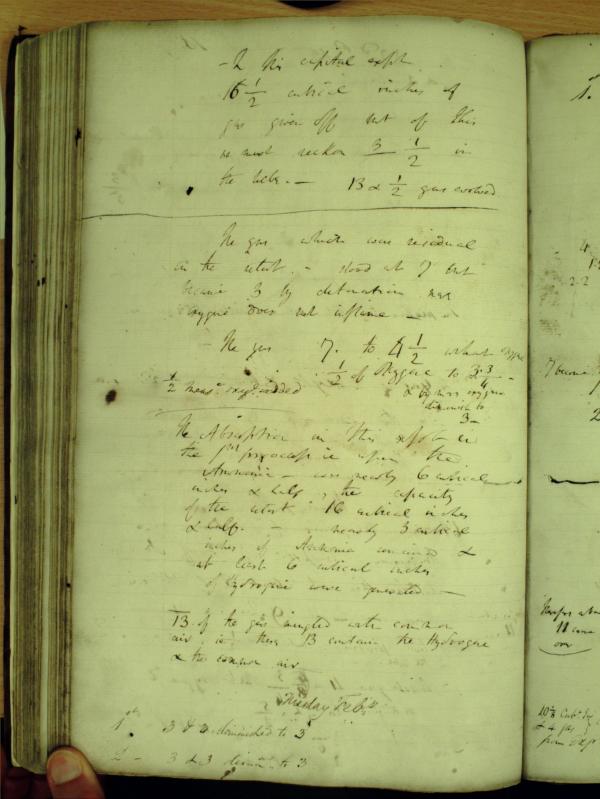 - In this capital expt
16 1/2 cubical inches of
gas given off but of this
we must reckon 3 1/2 in
the tube. - 13 & 1/2 gas evolved
The gas which was residual
in the retort. - stood at 7 but
became 3 by detonation
oxygene does not inflame -
- The gas 7. to 4 1/2 when
1/2 of oxygene to 3.3/4 -
1/2 meas. oxyg added
& by more oxygene
diminish to
3 -
The Absorption in this expt in
the 1st process ie upon the
Ammonia - was nearly 6 cubical
inches & half, the capacity
of the retort 16 cubical inches
& half. - nearly 3 cubical
inches of Ammonia &
at least 6 cubical inches
of hydrogene were generated -
13. of the gas mingled with common
air ie these 13 contain the Hydrogene
& the common air
Tuesday Feby
1st 3 & 3 diminished to 3
2 - 3 & 3 dimin. to 3
1.
4
2.2
7 become
11
over
10 1/2 Cub.
& 4 gas
from Exp